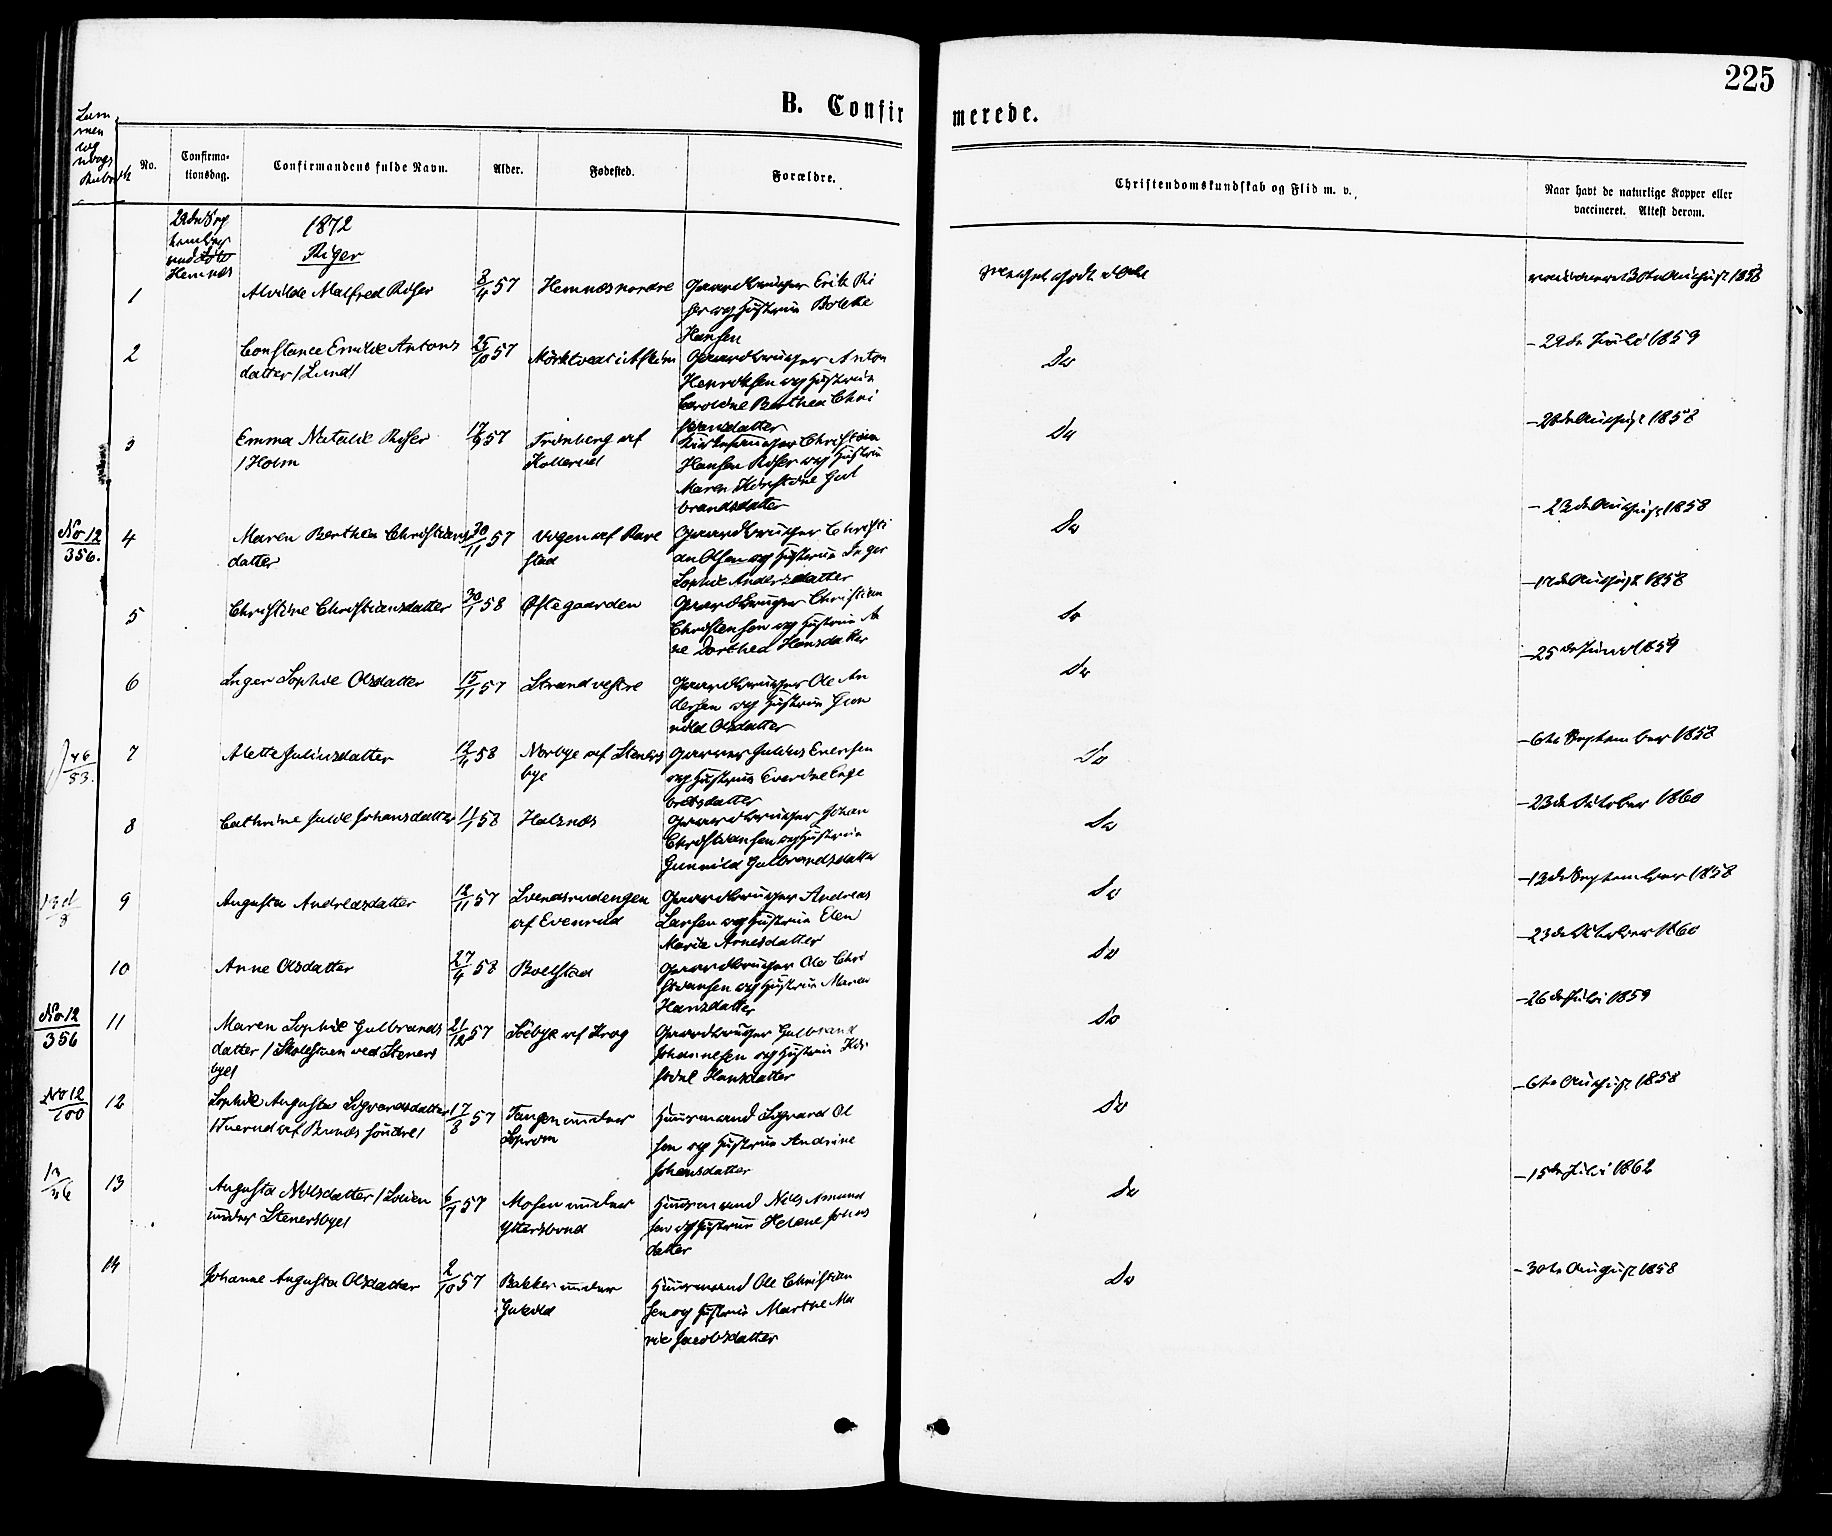 225
B. Confirmerede.
No.
Confirmationsdag.
Confirmandens fulde Navn.
Alder.
Fødested.
Forældre.
Christendomskundskab og Flid m. v.
Naar havt de naturlige Kopper eller
vaccineret. Attest derom.
1872
Piger
Hemnæs
1
Alvilde Malfred Riser
8/4 57
Hemnæs nordre
Gaardbruger Erik Ri
ser og Hustrue Bolette
Hansen
Meget godt
vaccineret 30te August 1858
2
Constance Emilie Antons
datter /Lund/
25/10 57
Gaardbruger Anton
Henriksen og Hustrue
Caroline Berthea Chri
stensdatter
Do
- 29de Juli 1859
3
Emma Natalie Riser
/Holm
17/9 57
Kollerud
Christian
Hansen Riser og Hustrue
Maren Kirstine Gul
brandsdatter
Do
- 28de August 1858
No 12
356.
4
Maren Berthea Christians
datter
30/11 57
Gaardbruger Christi
an Olsen og Hustrue Inger
Sophie Andersdatter
Do
- 23de August 1858
5
Christine Christiansdatter
30/1 58
Østegaarden
Gaardbruger Christian
Christensen og Hustrue An
ne Dorthea Hansdatter
Do
- 17de August 1858
6
Inger Sophie Olsdatter
15/11 57
Strand vestre
Gaardbruger Ole An
dersen og Hustrue Gun
nild Olsdatter
Do
- 25de Juni 1859
7
Alette Juliusdatter
58
Nerbye af Steners
bye
Julius Evensen
og Hustrue
bretsdatter
Do
- 6te September 1858
8
Cathrine Julie Johansdatter
58
Halsnæs
Gaardbruger Johan
Christiansen og Hustrue
Gunnild Gulbrandsdatter
Do
- 23de October 1860
9
Augusta Andreasdatter
12/11 57
Svendsrudengen
af Evenrud
Gaardbruger Andreas
Larsen og Hustrue Elen
Marie Arnesdatter
Do
- 13de September 1858
10
Anne Olsdatter
27/4 58
Bolstad
Gaardbruger Ole Chri
stiansen og Hustrue Maren
Hansdatter
Do
- 23de October 1860
No 12
356
11
Maren Sophie Gulbrands
datter /Skolestuen ved Steners
bye/
21/12 57
Søebye af Krog
Gaardbruger Gulbrand
Johannesen og Hustrue Kir
stine Hansdatter
Do
- 26de Juli 1859
No 12
100
12
Sophie Augusta Sigvardsdatter
17/8 57
Tangen under
Huusmand Sigvard Ol
sen og Hustrue Andrine
Johansdatter
Do
- 6te August 1858
13
Augusta Nilsdatter
under Stenersbye/
6/7 57
Mosen under
Yttersbond
Huusmand Nils Amund
sen og Hustrue Helene Johns
datter
Do
- 15de Juli 1862
14
Johanne Augusta Olsdatter
2/10 57
Bakken under
Huusmand Ole Christian
sen og Hustrue Marthe Ma
rie Jacobsdatter
Do
- 30te August 1858